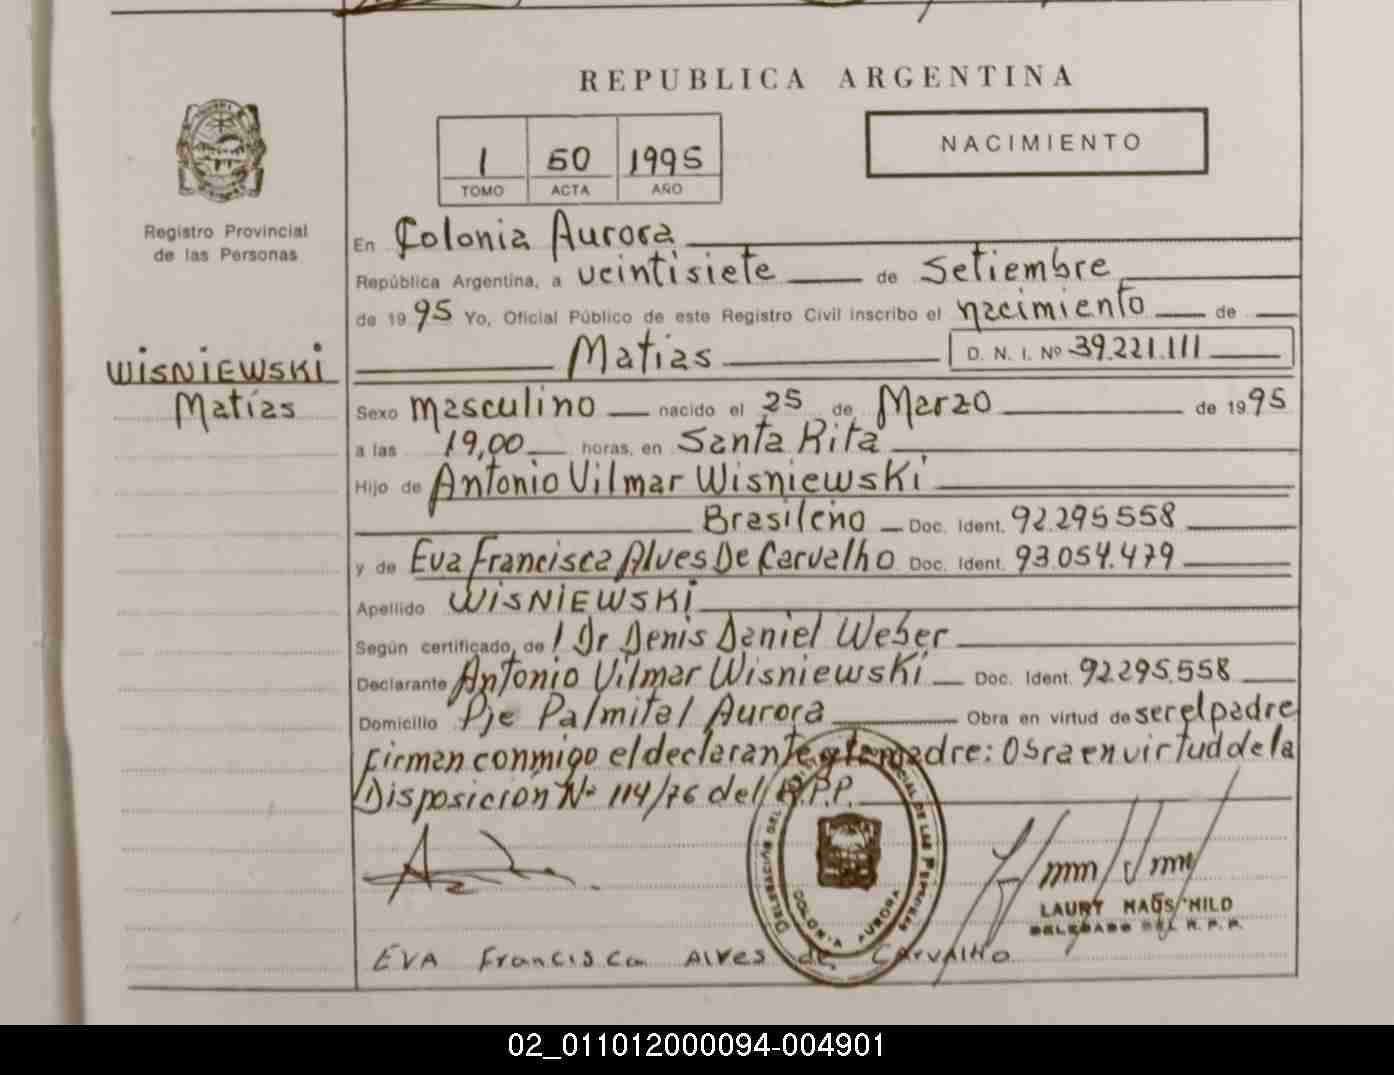 REPUBLICA ARGENTINA
NACIMIENTO
1 50 1995
TOMO ACTA AÑO
Registro Provincial
de las Personas
En Colonia Aurora
República Argentina, a veintisiete de Setiembre
de 1995 Yo, Oficial Público de este Registro Civil inscribo el nacimiento de
Matias D. N. I. Nº 39.221.111
WISNIEWSKI
Matías
Sexo masculino nacido el 25 de Marzo de 1995
a las 19,00 horas, en Santa Rita
Hijo de Antonio Vilmar Wisniewski
Brasileño Doc. Ident. 92.295.558
y de Eva Francisca Alves De Carvalho Doc. Ident. 93.054.479
Apellido WISNIEWSKI
Según certificado, de / Dr Denis Daniel Weber
Declarante Antonio Vilmar Wisniewski Doc. Ident. 92.295.558
Domicilio Pje Palmital Aurora Obra en virtud de ser el padre
Firman conmigo el declarante y la madre: Obra en virtud de la
Disposición Nº 114/76 del R.P.P.
DELEGACIÓN DEL PROVINCIAL DE LAS PERSONAS
COLONIA AURORA
LAURY MAUS MILD
DELEGADO DEL R. P. P.
EVA Francisca Alves de CARVALHO
02_011012000094-004901